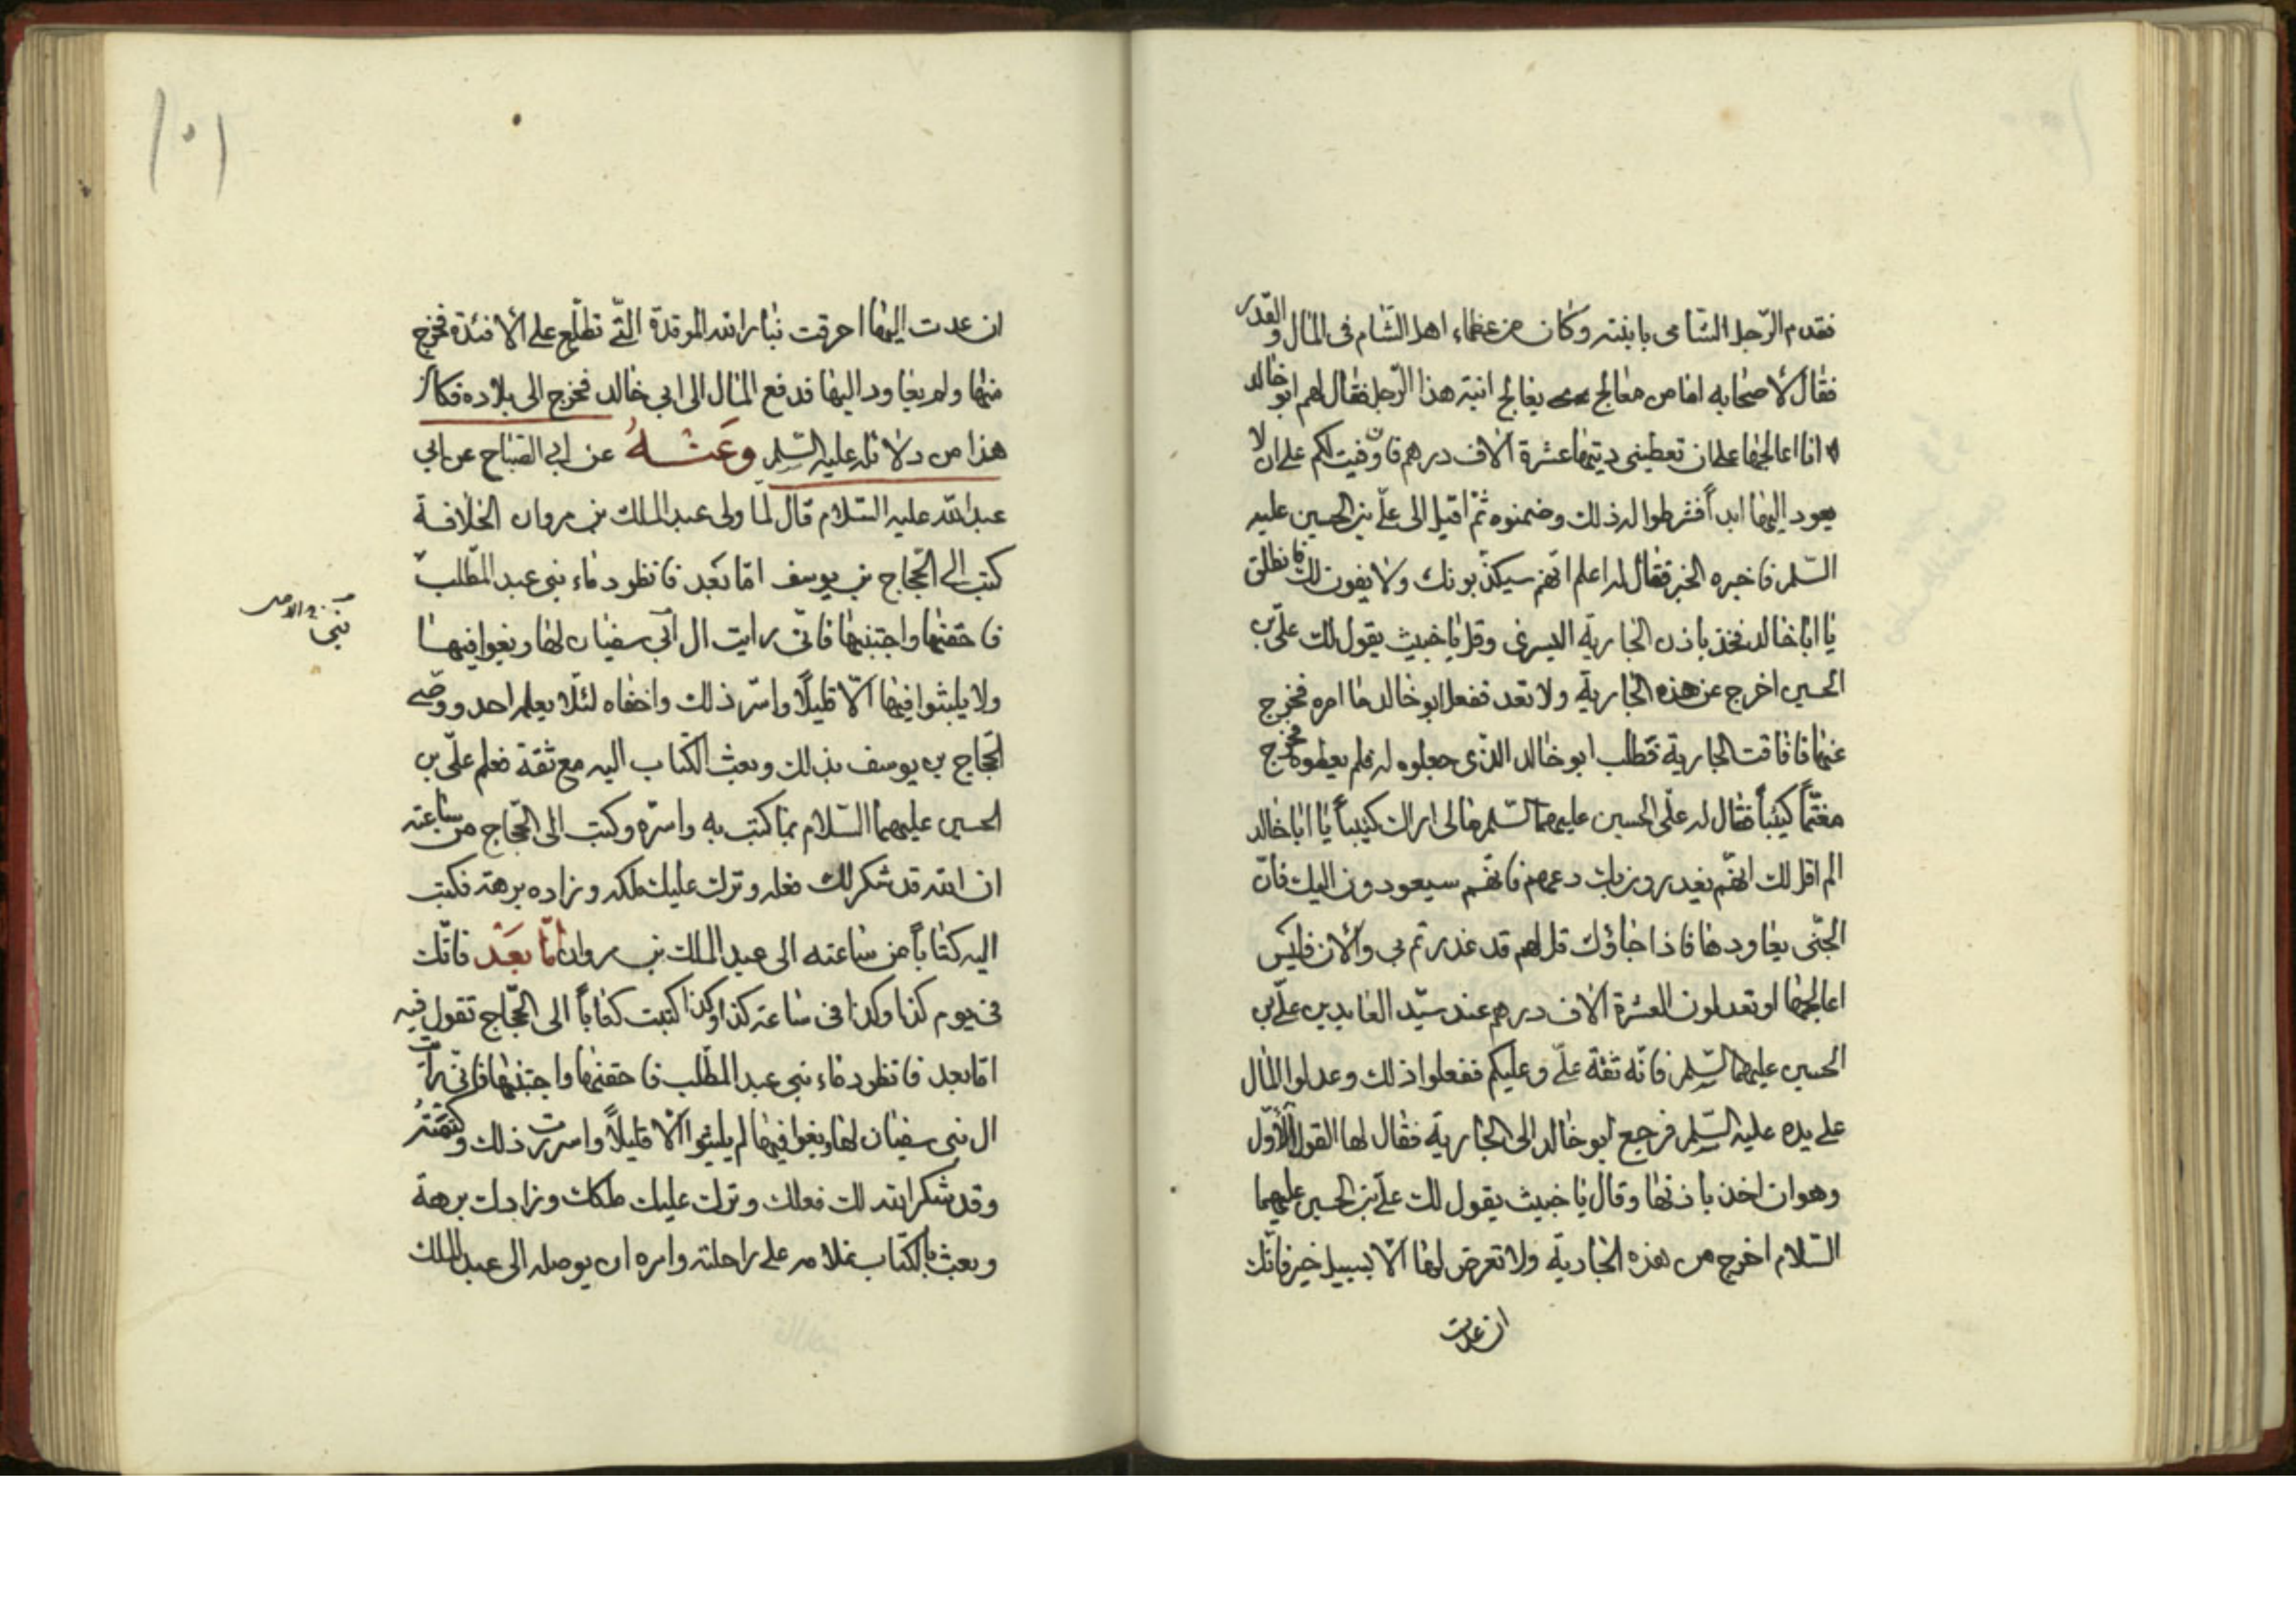 فقدم الرّجل الشّامى بابنته وكان من عظماء اهل الشّام فى المال والقدر
فقال لأصحابه اما من معالج يعالج ابنة هذا الرّجل فقال لهم ابو خالد
انا اعالجها على ان تعطينى ديتها عشرة آلاف درهم فان وفيت لكم على ان لا
يعود اليها ابداً فشرطوا له ذلك وضمنوه ثمّ اقبل الى علىّ بن الحسين عليه
السّلم فاخبره الخبر فقال له اعلم انّهم سيكذّبونك ولا يفون لك فانطلق
يا ابا خالد فخذ باذن الجارية اليسرى وقل يا خبيث يقول لك علىّ بن
الحسين اخرج عن هذه الجارية ولا تعد ففعل ابو خالد ما امره فخرج
عنها فافاقت الجارية فطلب ابو خالد الذّى جعلوه له فلم يعطوه فخرج
مغتمّاً كئيباً فقال له علىّ الحسين عليهما السّلم مالى اراك كئيباً يا ابا خالد
الم اقل لك انهّم يغدرون بك دعهم فانهّم سيعودون اليك فانّ
الجنّى يعاودها فاذا جاؤك قل لهم قد غدرتم بى والآن فليس
اعالجها او تعدلون العشرة آلاف درهم عند سيّد العابدين علىّ بن
الحسين عليهما السّلم فانّه ثقة علىّ وعليكم ففعلوا ذلك وعدلوا المال
على يده عليه السّلم فرجع ابو خالد الى الجارية فقال لها القول الأوّل
وهو ان اخذ باذنها وقال يا خبيث يقول لك علىّ بن الحسين عليهما
السّلام اخرج من هذه الجارية ولا تعرض لها الّا بسبيل خير فانّك
ان عدت
١٠١
ان عدت اليها احرقت بنار الله الموقدة الّتى تطّلع على الأفئدة فخرج
منها ولم يعاود اليها فدفع المال الى ابى خالد فخرج الى بلاده فكان
هذا من دلائله عليه السّلم وَعَنْهُ عن ابى الصّباح عن ابى
عبد الله عليه السّلام قال لمّا ولى عبد الملك بن مروان الخلافة
كتب الى الحّجاج بن يوسف امّا بَعد فانظر دماء بنى عبد المطّلب
فاحقنها واجتنبها فانّى رايت ال ابى سفيان لهّا ويغوا فيها
ولا يلبثوا فيها الّا قليلاً واسّر ذلك واخفاه لئلّا يعلم احد ووصّى
الحّجاج بن يوسف بذلك وبعث الكّتاب اليه مع ثقة فعلم علىّ بن
الحسين عليهما السّلام بما كتب به واسرّه وكتب الى الحّجاج من ساعته
ان الله قد شكر لك فعله وترك عليك ملكه وزاده برهة فكتب
اليه كتاباً من ساعته الى عبد الملك بن مروان امّا بَعَدْ فانّك
فى يوم كذا وكذا فى ساعة كذا وكذا كتبت كتاباً الى الحّجاج تقول فيه
امّا بعد فانظر دماء بنى عبد المطّلب فاحقنها واجتنبها فانّى رأيت
ال بنى سفيان لهّا ويغوا فيها لم يلبثوا الّا قليلاً واسررت ذلك وكتمته
وقد شكر الله لك فعلك وترك عليك ملكك وزادك برهة
وبعث بالكّتاب غلامه على راحلته وامره ان يوصله الى عبد الملك